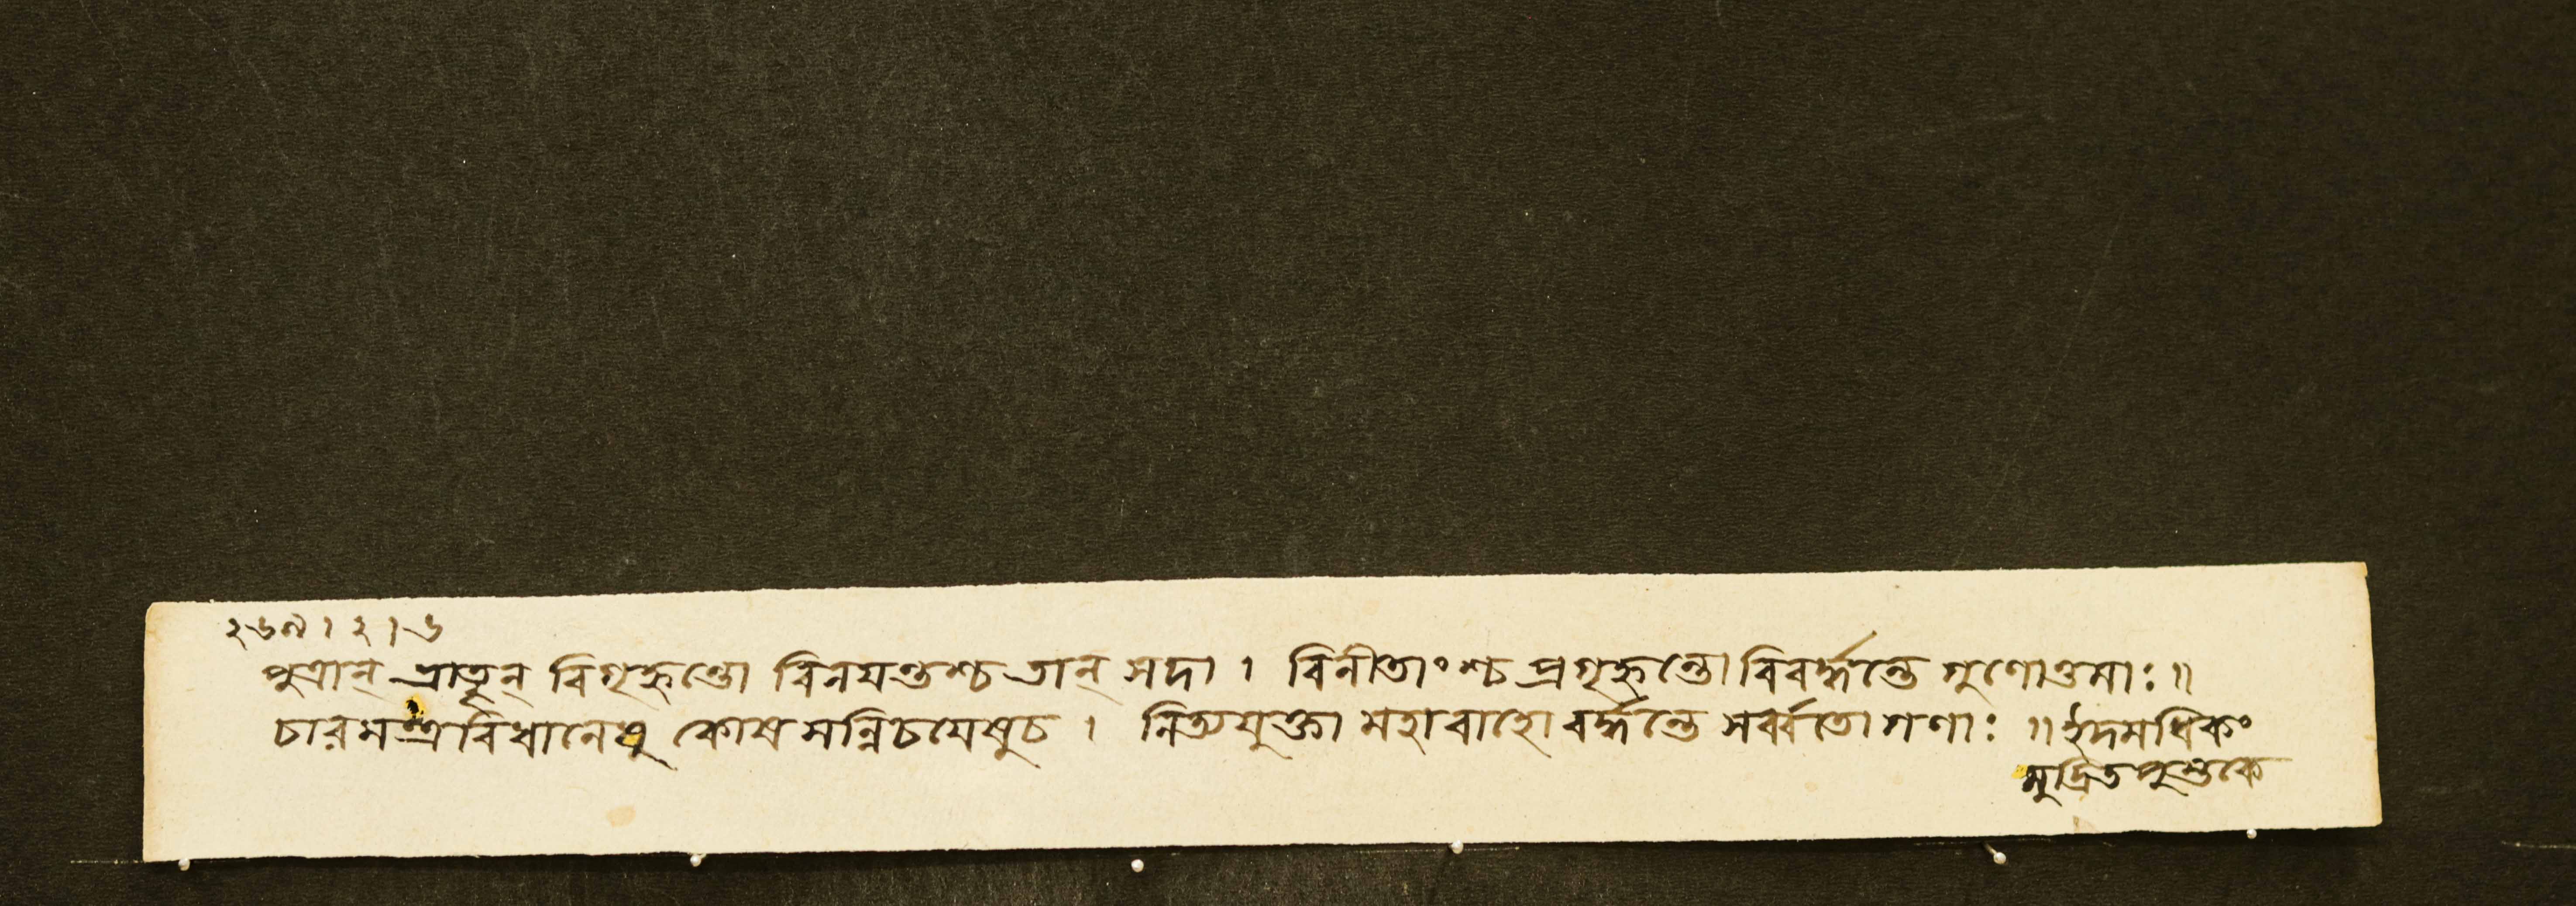 ২৬৯।২।৬
পুত্রান্ ভ্রাতৄন্ বিগৃহ্ণন্তো বিনয়ন্তশ্চ তান্ সদা। বিনীতাংশ্চ প্রগৃহ্ণন্তো বিবর্দ্ধন্তে গুণোত্তমাঃ॥
চারমন্ত্রবিধানেষু কোষসন্নিচয়েষুচ। নিত্যযুক্তা মহাবাহো বর্দ্ধন্তে সর্ব্বতো গণাঃ॥ ইদমধিকং
মুদ্রিতপুস্তকে